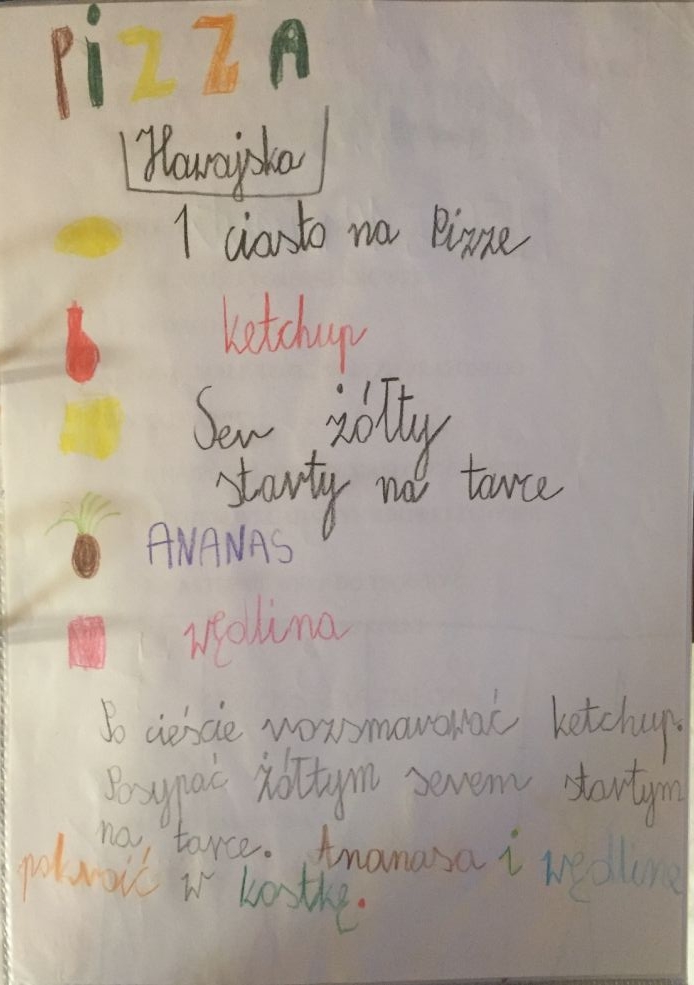 PiZZA
Hawajska
1 ciasto na Pizze
ketchup
Ser żółty
starty na tarce
ANANAS
wędlina
Po cieście rozsmarować ketchup.
Posypać żółtym serem startym
na tarce. Ananasa i wędlinę
pokroić w kostkę.